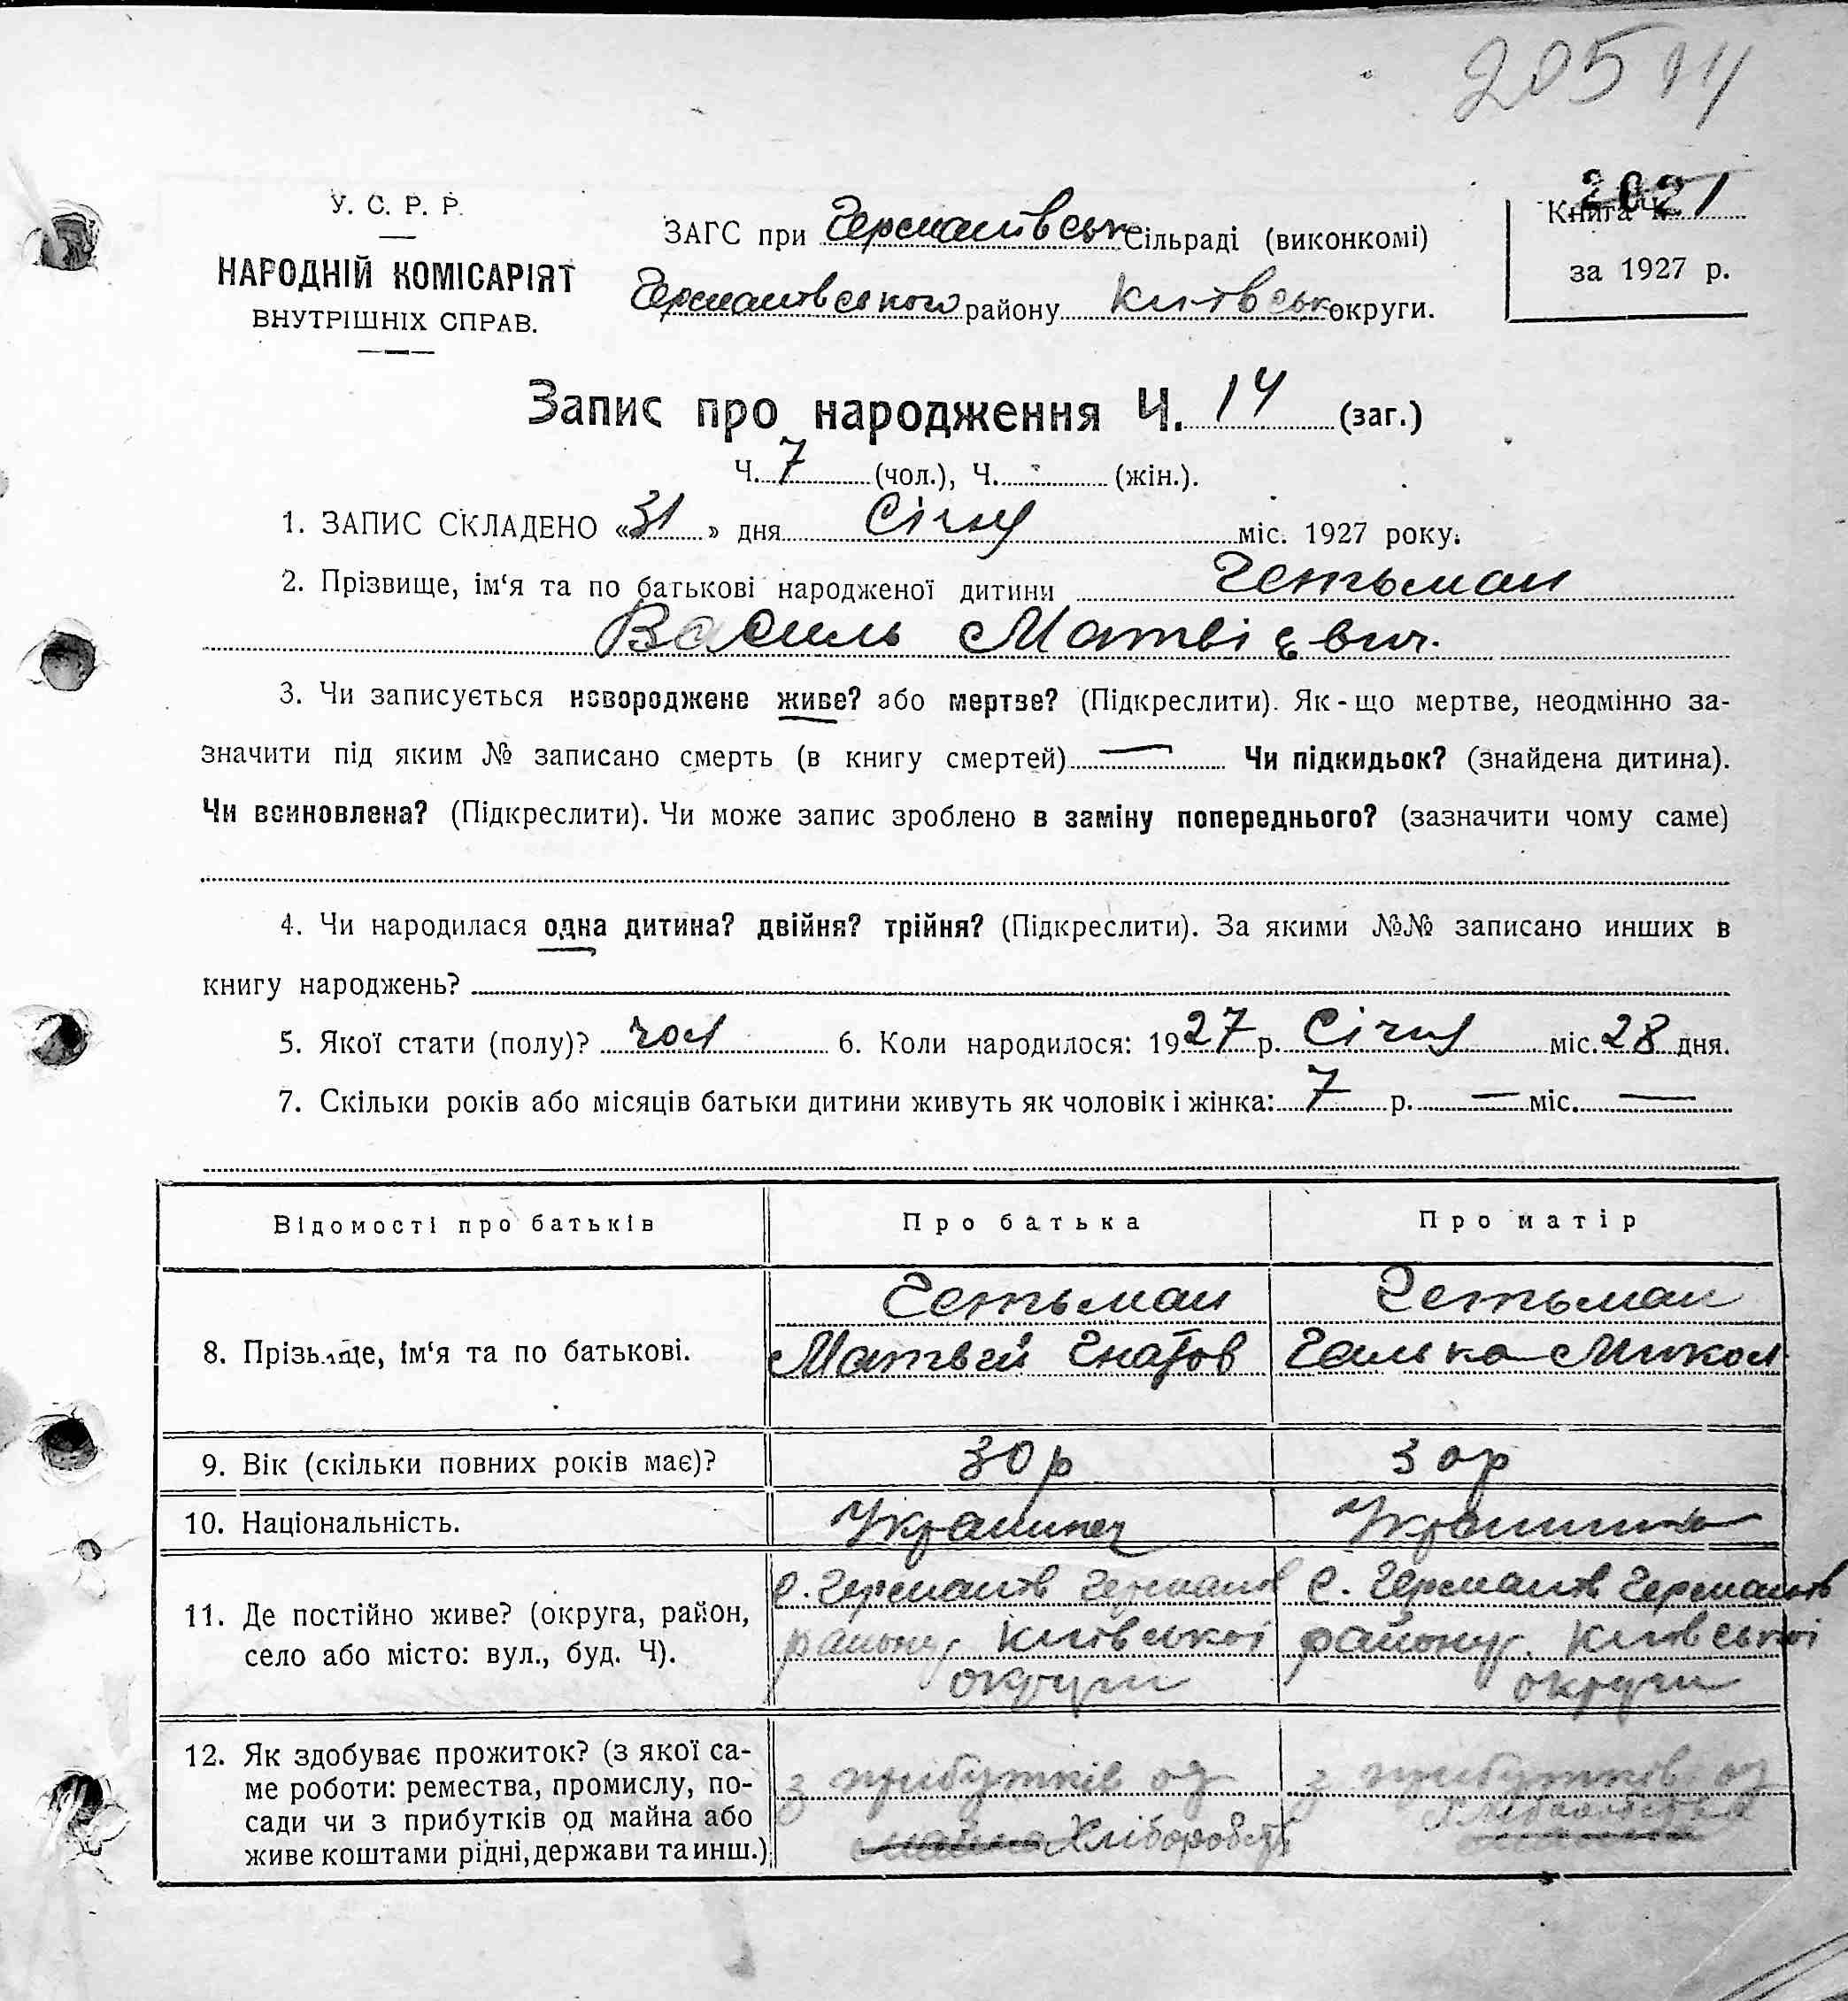 205 14
У. С. Р. Р.
НАРОДНІЙ КОМІСАРІЯТ
ВНУТРІШНІХ СПРАВ.
ЗАГС при Германівськ сільраді (виконкомі)
Германівського району Київськ округи.
Книга Ч.
за 1927 р.
Запис про народження Ч. 14 (заг.)
Ч. 7 (чол.), Ч. (жін.).
1. ЗАПИС СКЛАДЕНО «31» дня Січня міс. 1927 року.
2. Прізвище, ім‘я та по батькові народженої дитини Гетьман
Василь Матвієвич.
3. Чи записується новороджене живе? або мертве? (Підкреслити). Як-що мертве, неодмінно за-
значити під яким № записано смерть (в книгу смертей) — Чи підкидьок? (знайдена дитина).
Чи всиновлена? (Підкреслити). Чи може запис зроблено в заміну попереднього? (зазначити чому саме)
4. Чи народилася одна дитина? двійня? трійня? (Підкреслити). За якими №№ записано инших в
книгу народжень?
5. Якої стати (полу)? чол 6. Коли народилося: 1927 р. Січня міс. 28 дня.
7. Скільки років або місяців батьки дитини живуть як чоловік і жінка: 7 р. — міс. —
Відомості про батьків Про батька Про матір
Гетьман Гетьман
8. Прізвище, ім‘я та по батькові. Матвей Гнатов Галька Микол
9. Вік (скільки повних років має)? 30 р 30 р
10. Національність. Українец Українка
11. Де постійно живе? (округа, район, село або місто: вул., буд. Ч).
с. Германів Германів с. Германів Германів
району Київської району Київської
округи округи
12. Як здобуває прожиток? (з якої са-
ме роботи: ремества, промислу, по-
сади чи з прибутків од майна або
живе коштами рідні, держави та инш.)
з прибутків од з прибутків од
майна Хліборобст